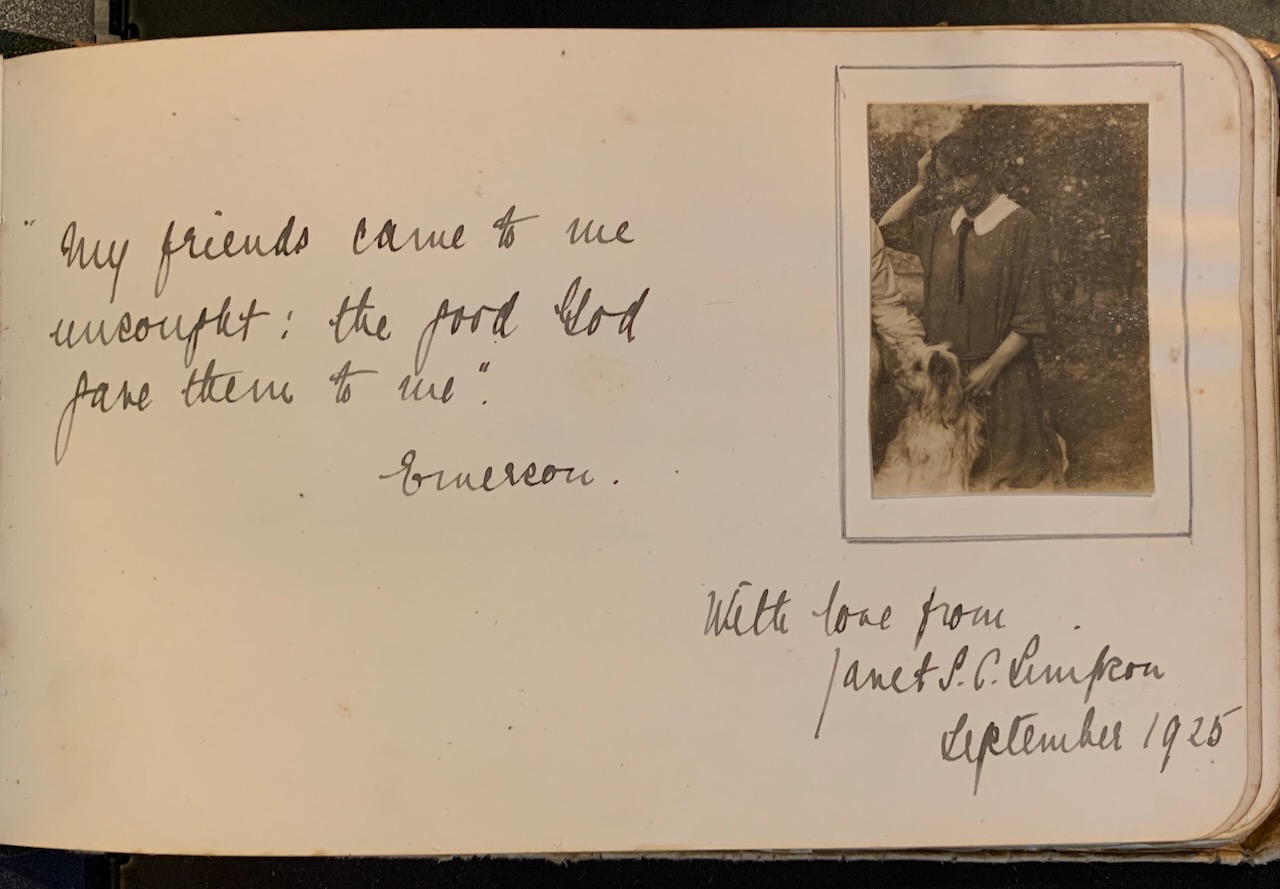 " My friends came to me
unsought : the good God
gave them to me".
Emerson.
With love from
Janet S. C. Simpson
September 1925